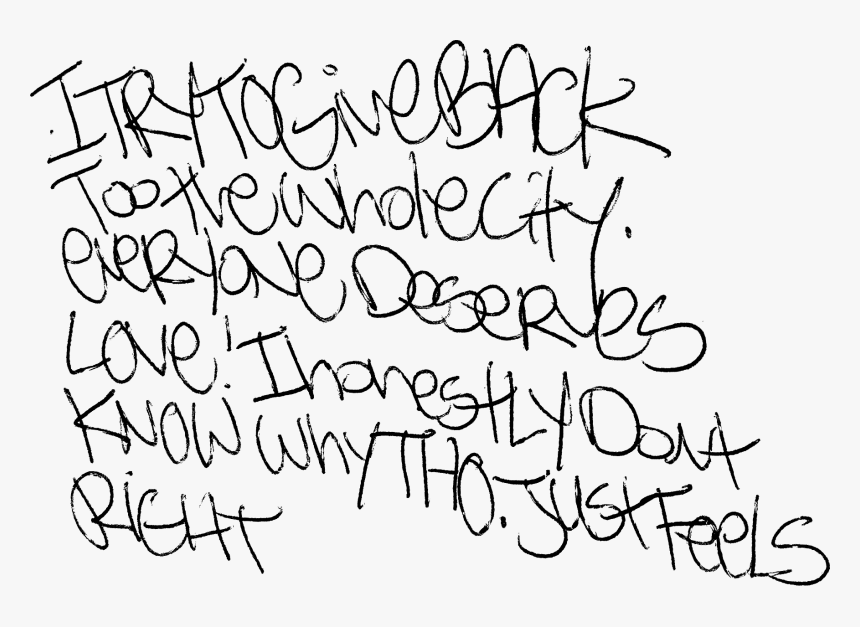 I TRY TO Give BACK
Too the whole City.
eveRyone Deserves
Love! I honestLy Dont
KNOW why THO. Just Feels
RiGHT